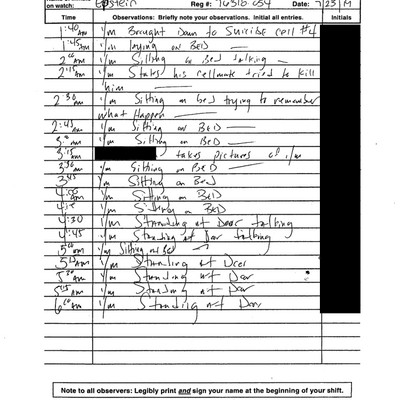 on watch) Epstein Reg #: 76318-054 Date: 7/23/19
Time Observations: Briefly note your observations. Initial all entries. Initials
1:40 am I/m Brought Down to Suicide cell #4
1:45 am I/m laying on BED
2:00 am I/m Sitting on Bed talking
2:15 am I/m States his cellmate tried to kill
him
2:30 am I/m Sitting on bed trying to remember
what Happen
2:45 am I/m Sitting on BED
I/m Sitting on BED
3:15 am takes pictures of I/m
3:30 am I/m Sitting on BED
3:45 I/m Sitting on Bed
4:00 am I/m Sitting on BED
4:15 I/m Sitting on BED
4:30 I/m Standing at Door talking
4:45 I/m Standing at Door talking
5:00 am I/m Sitting on Bed
5:15 am I/m Standing at Door
5:30 am I/m Standing at Door
am I/m Standing at Door
6:00 am I/m Standing at Door
Note to all observers: Legibly print and sign your name at the beginning of your shift.